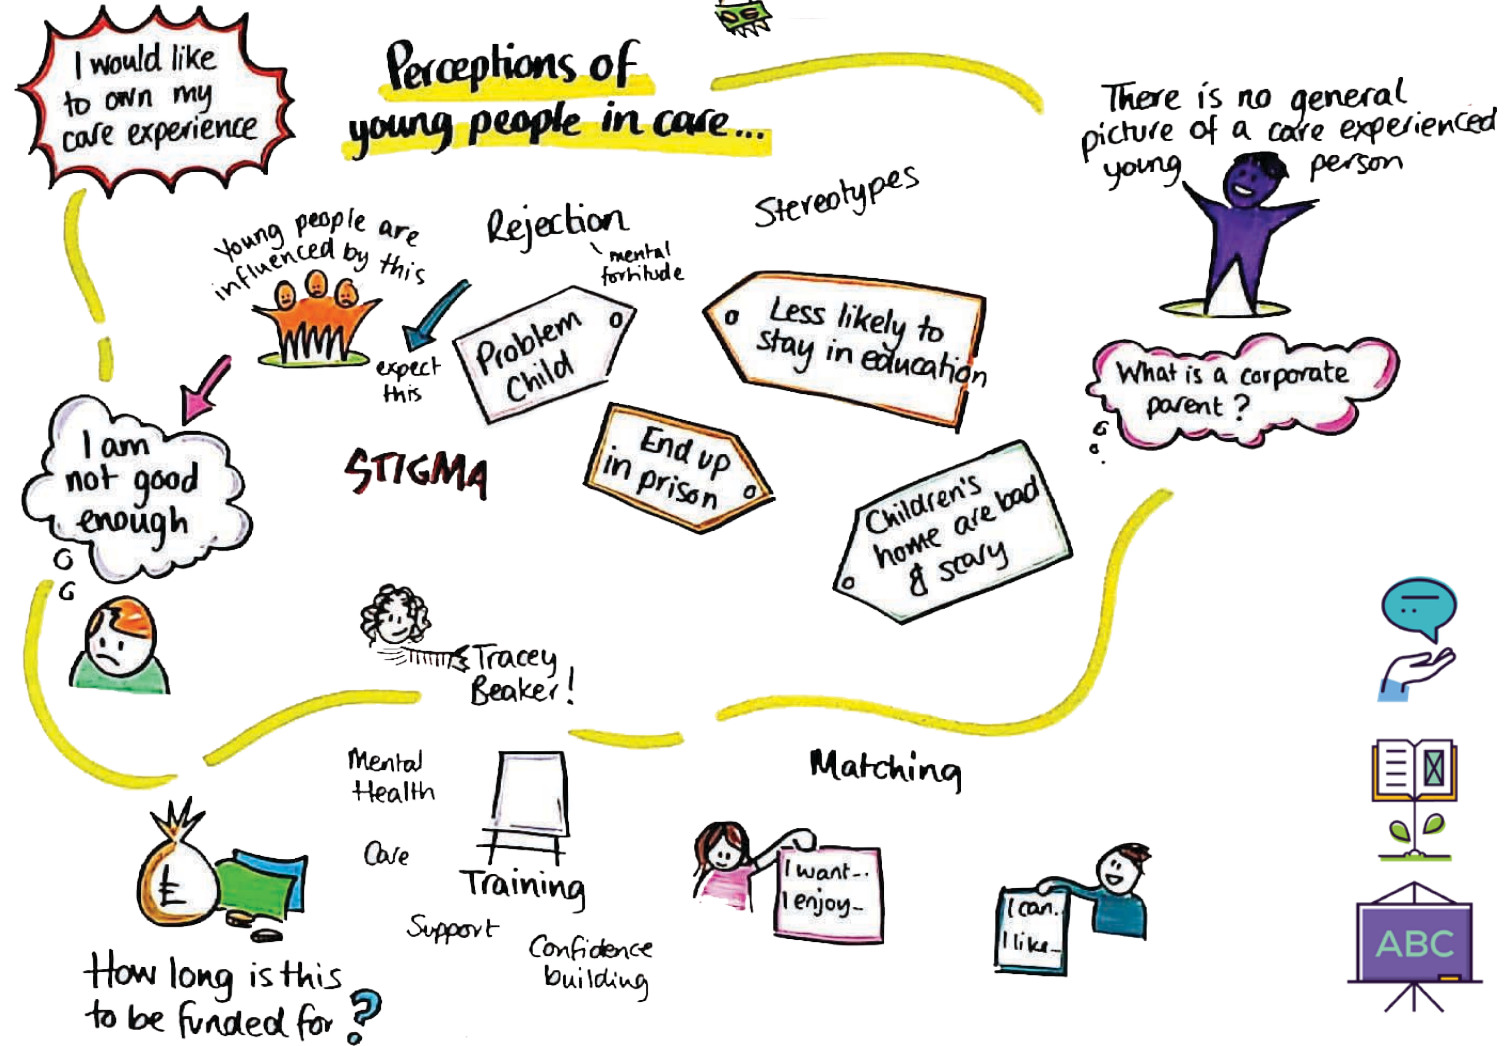 I would like
to own my
care experience
Perceptions of
young people in care...
There is no general
picture of a care experienced
young person
Young people are
influenced by this
Rejection
mental
fortitude
Stereotypes
expect
this
Problem
Child
Less likely to
stay in education
What is a corporate
parent?
I am
not good
enough
STIGMA
End up
in prison
Children's
home are bad
& scary
Tracey
Beaker!
Mental
Health
Care
Training
Support
Confidence
building
Matching
I want...
I enjoy...
I can..
I like...
£
How long is this
to be funded for?
ABC